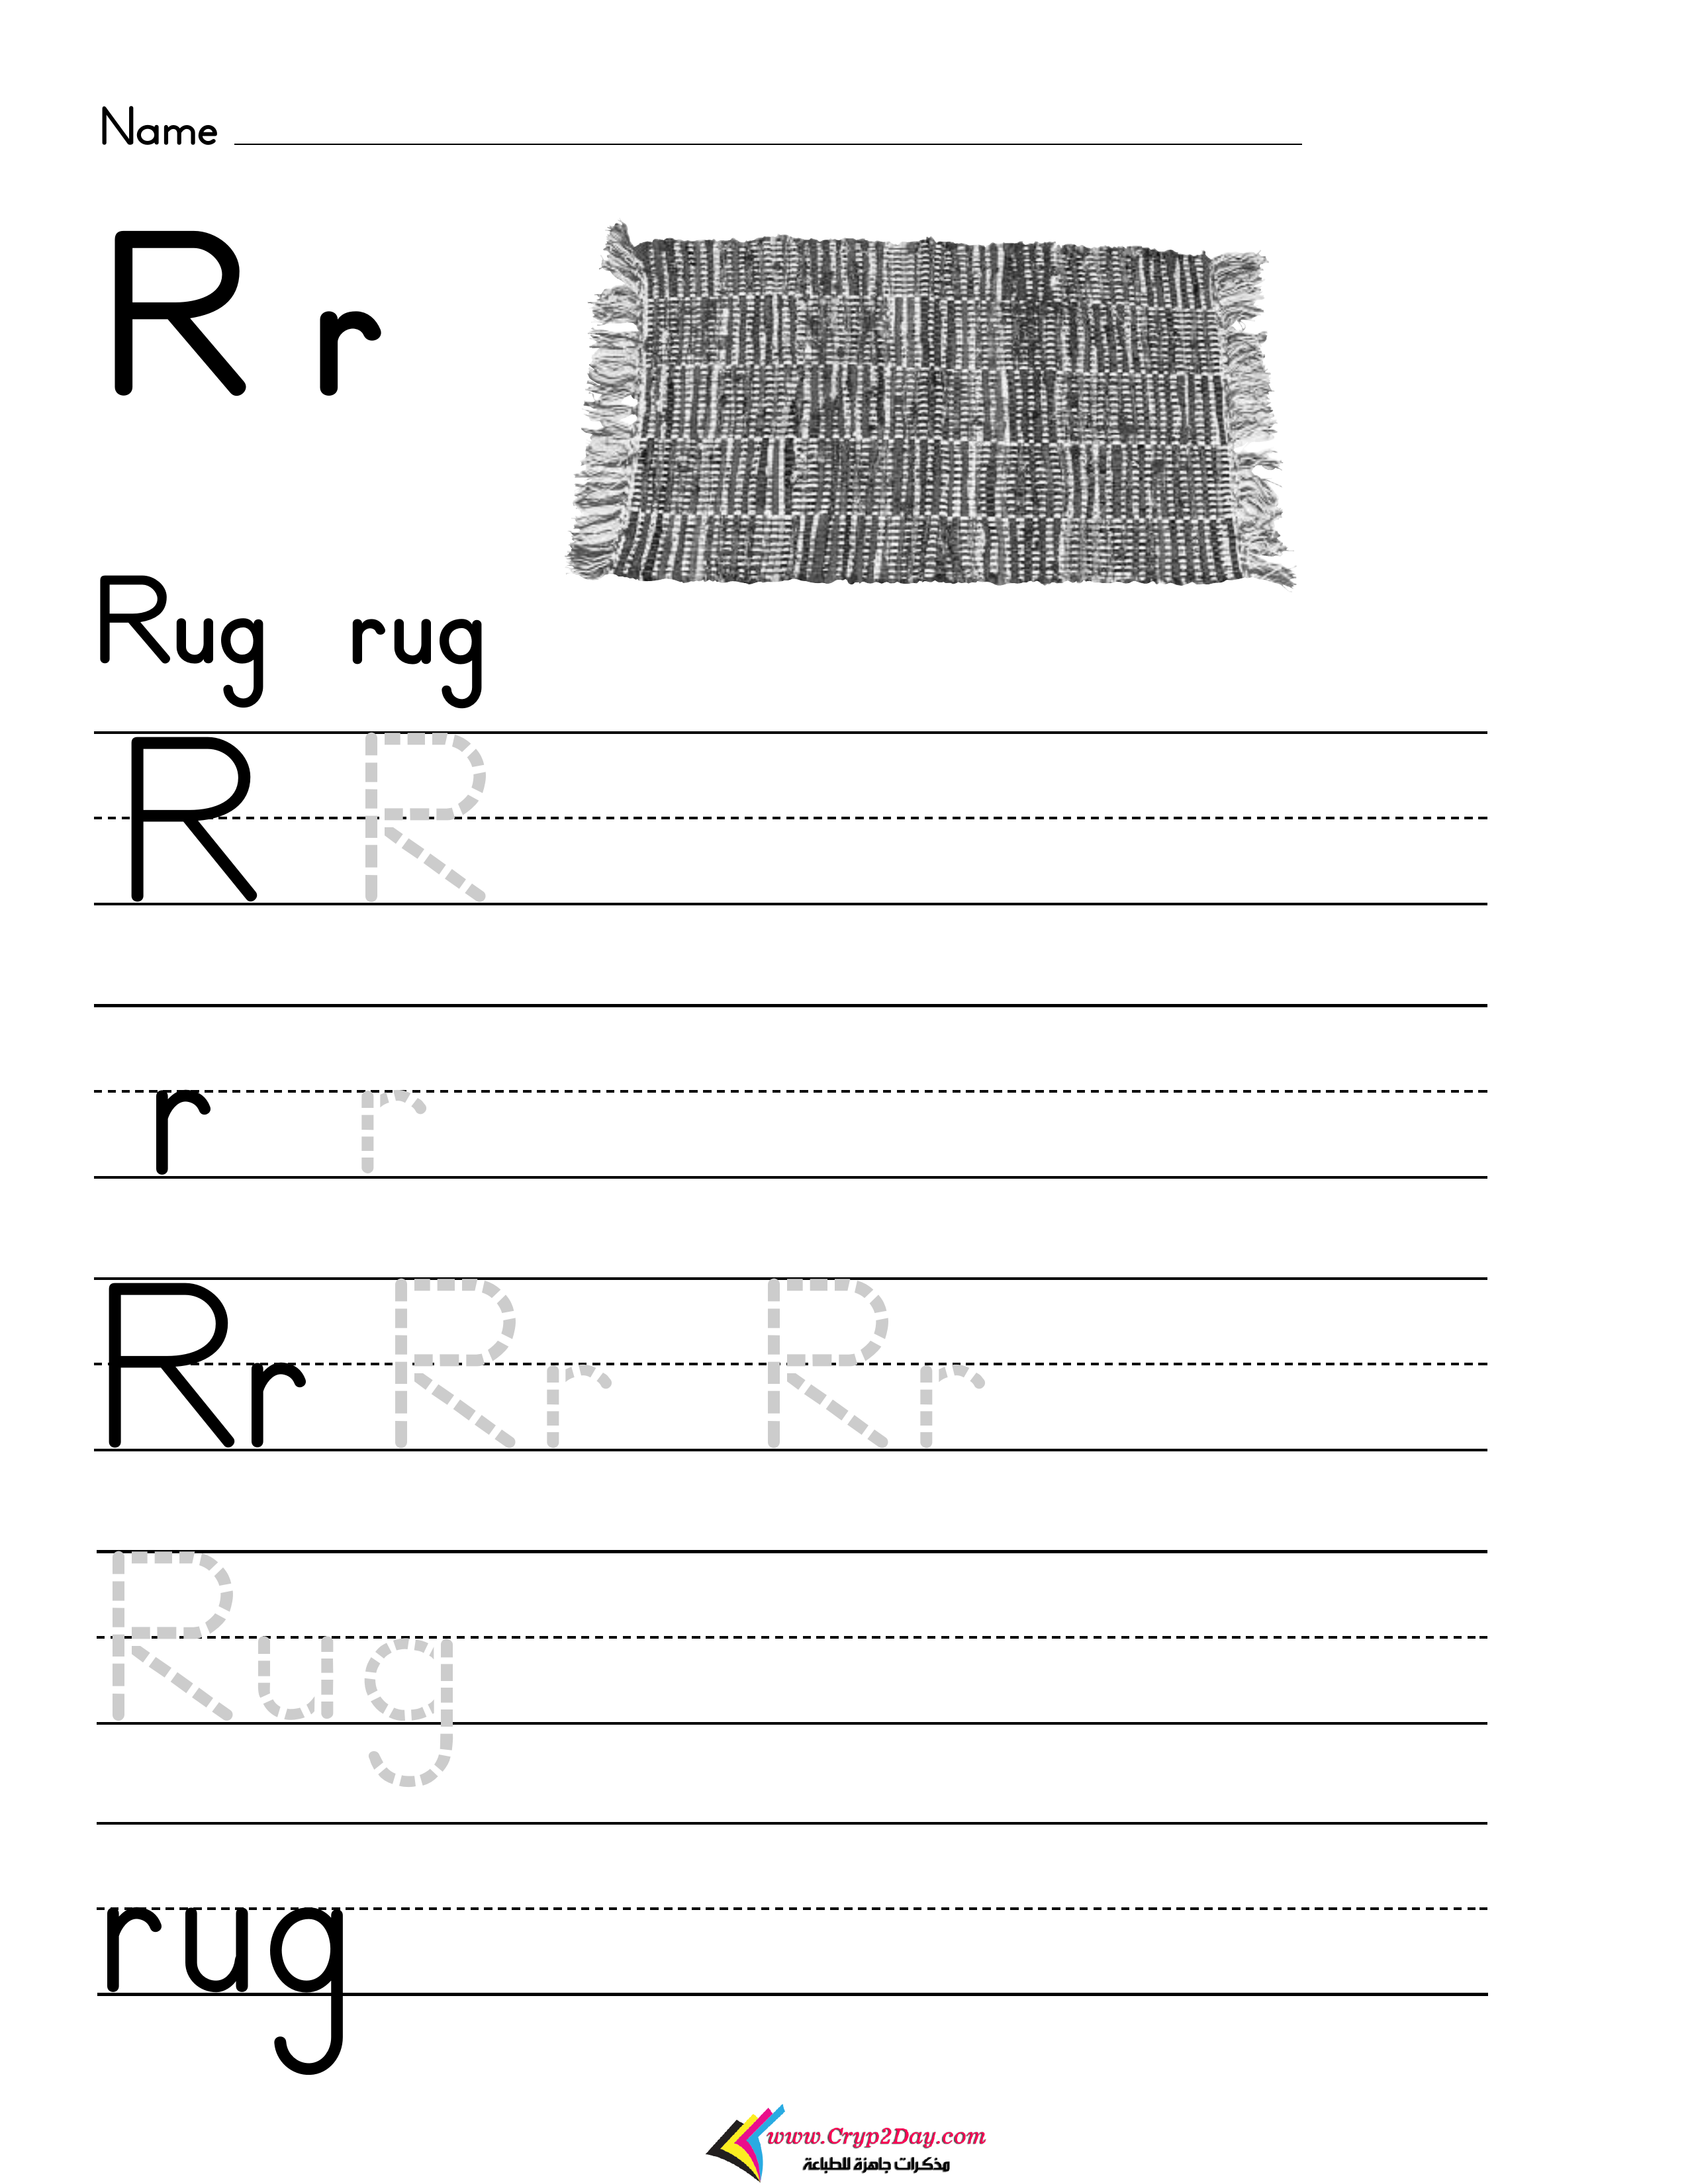 Name
R r
Rug rug
R R
r r
Rr Rr Rr
Rug
rug
www.Cryp2Day.com
مذكرات جاهزة للطباعة